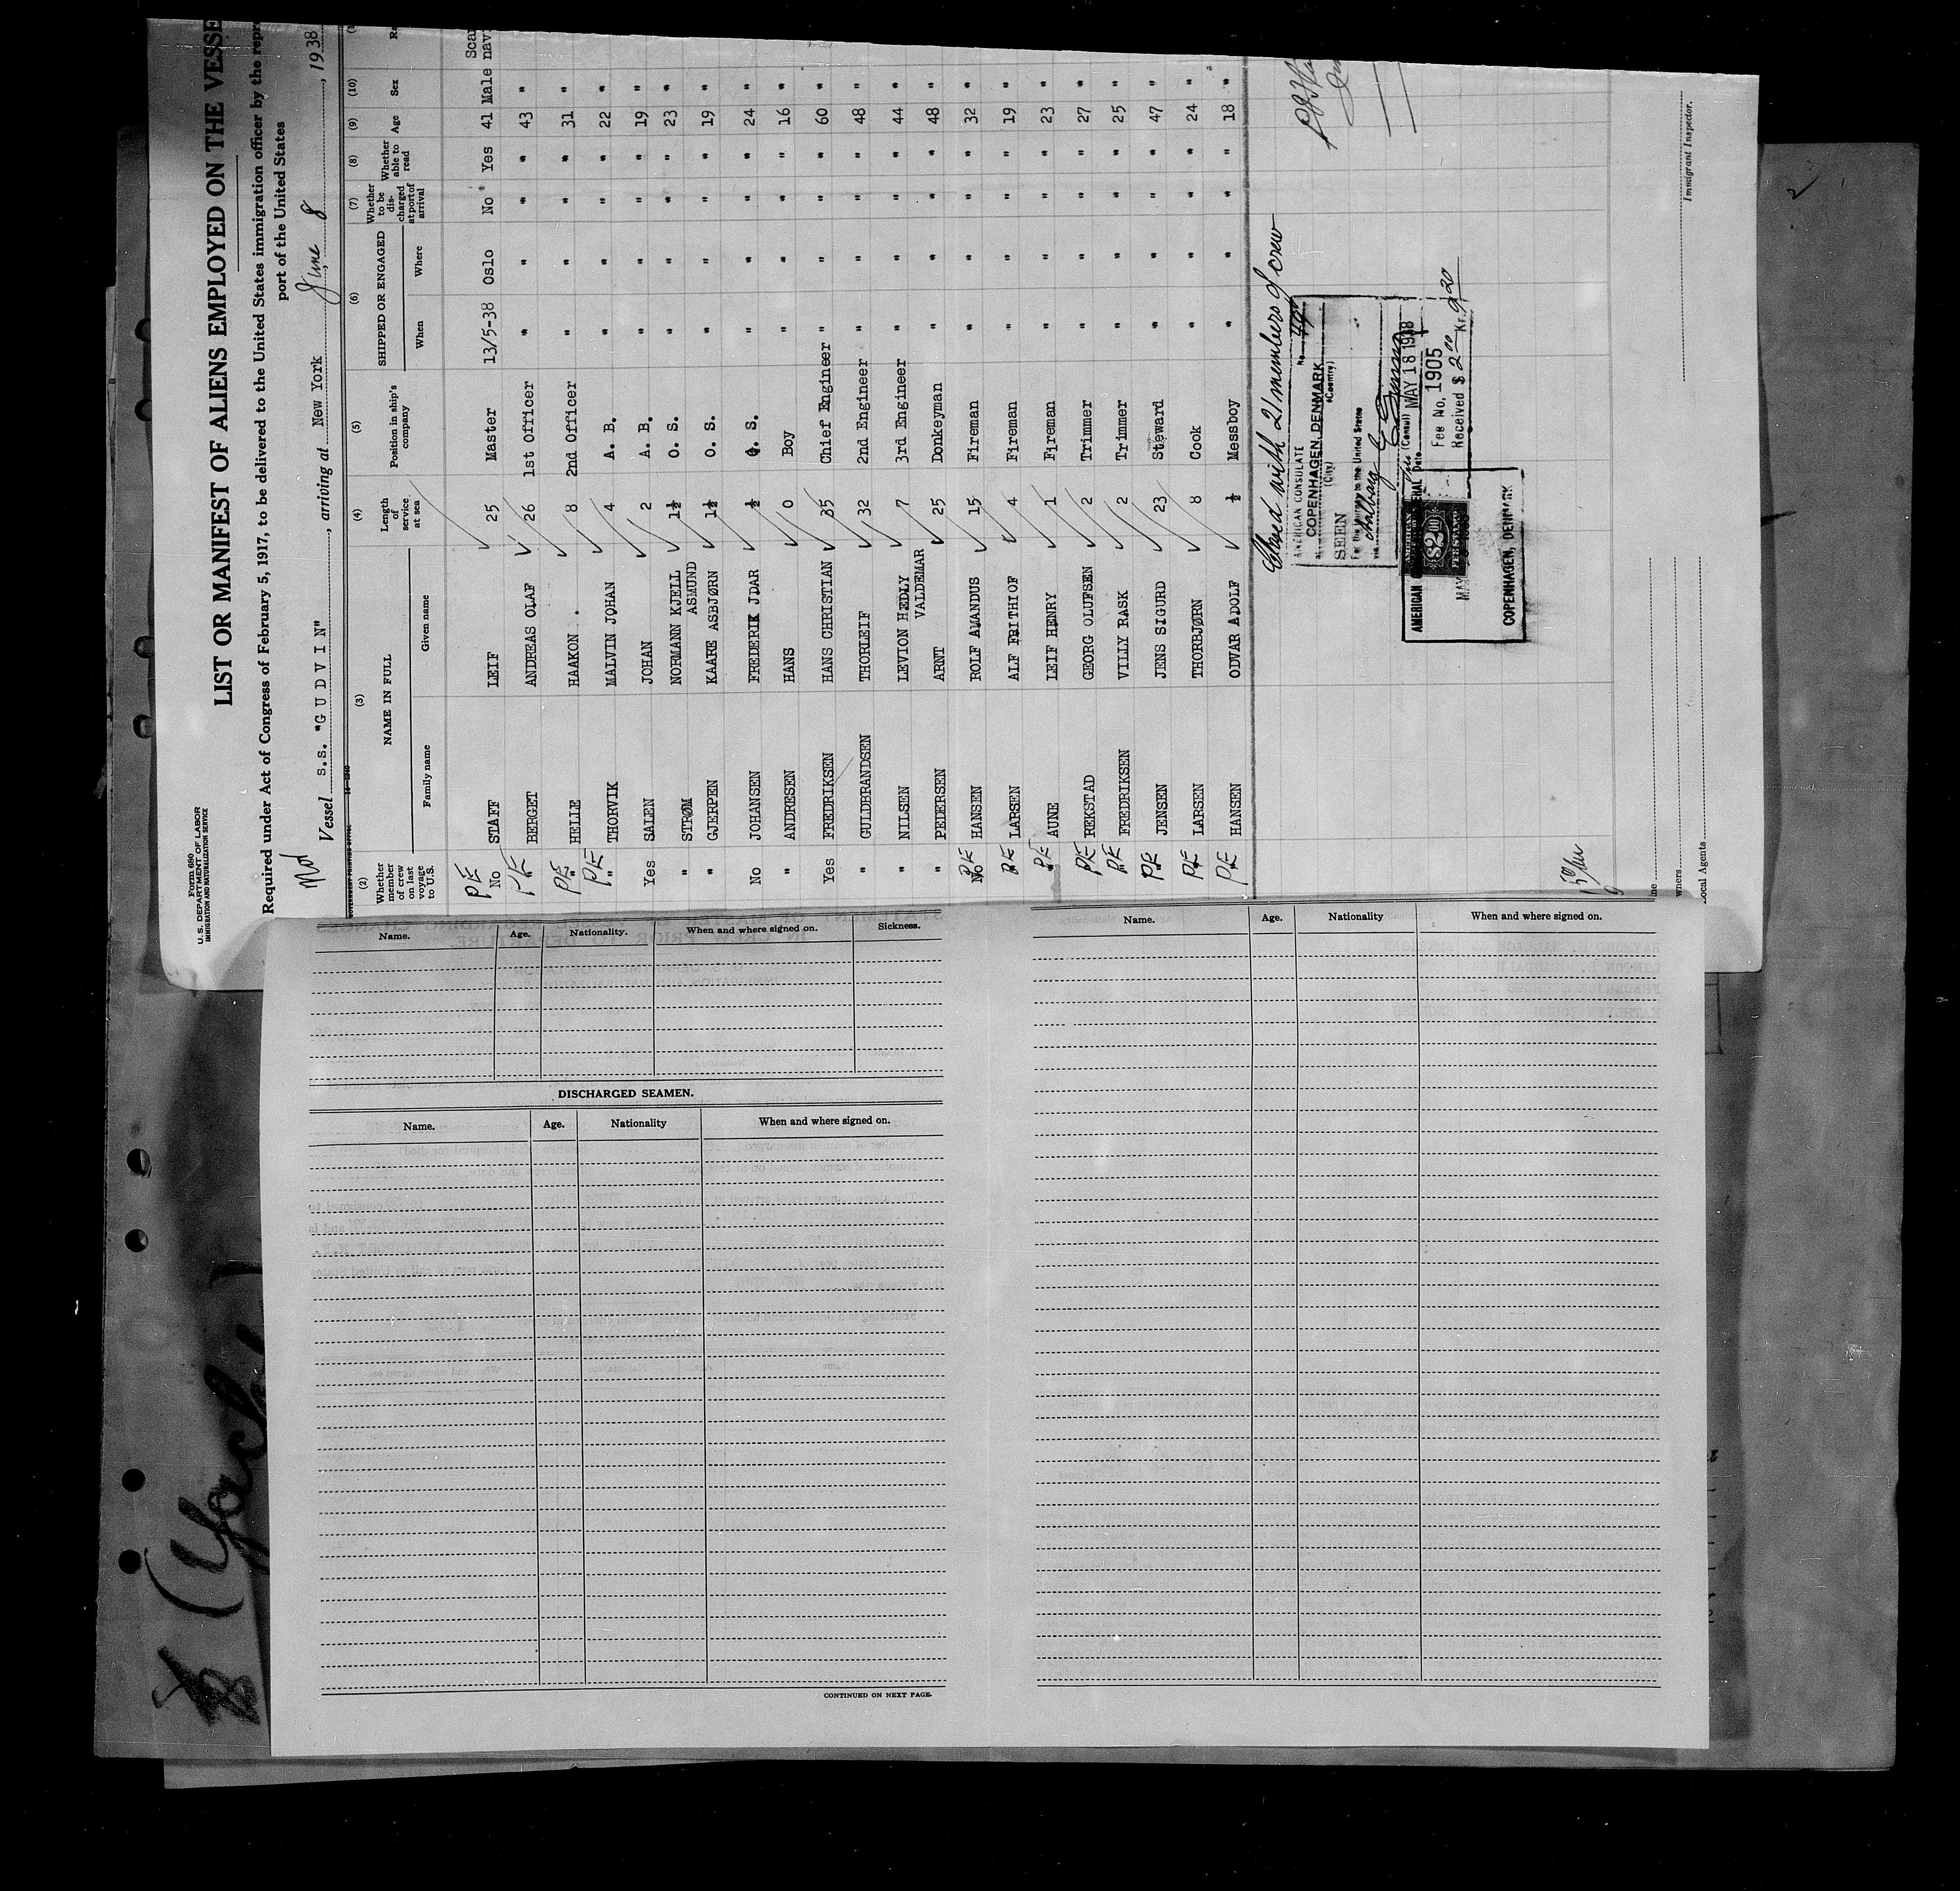 Form 680
U. S. DEPARTMENT OF LABOR
IMMIGRATION AND NATURALIZATION SERVICE
LIST OR MANIFEST OF ALIENS EMPLOYED ON THE VESSE
Required under Act of Congress of February 5, 1917, to be delivered to the United States immigration officer by the repr
port of the United States
Vessel S.S. "G U D V I N", arriving at New York June 8, 1938
(2) (3) (4) (5) (6) (7) (8) (9) (10)
Whether member of crew on last voyage to U.S. NAME IN FULL Length of service at sea Position in ship's company SHIPPED OR ENGAGED Whether to be discharged at port of arrival Whether able to read Age Sex Ra
Family name Given name When Where
PE No STAFF LEIF 25 Master 13/5-38 Oslo No Yes 41 Male Scan nav
PE " BERGET ANDREAS OLAF 26 1st Officer " " " " 43 "
PE " HELLE HAAKON . 8 2nd Officer " " " " 31 "
PE " THORVIK MALVIN JOHAN 4 A. B. " " " " 22 "
Yes SALEN JOHAN 2 A. B. " " " " 19 "
" STRØM NORMANN KJELL ASMUND 1½ O. S. " " " " 23 "
" GJERPEN KAARE ASBJØRN 1½ O. S. " " " " 19 "
No JOHANSEN FREDERIK JDAR ½ O. S. " " " " 24 "
" ANDRESEN HANS 0 Boy " " " " 16 "
Yes FREDRIKSEN HANS CHRISTIAN 35 Chief Engineer " " " " 60 "
" GULDBRANDSEN THORLEIF 32 2nd Engineer " " " " 48 "
" NILSEN LEVION HEDLY VALDEMAR 7 3rd Engineer " " " " 44 "
" PEDERSEN ARNT 25 Donkeyman " " " " 48 "
PE No HANSEN ROLF AMANDUS 15 Fireman " " " " 32 "
PE " LARSEN ALF FRITHIOF 4 Fireman " " " " 19 "
PE " AUNE LEIF HENRY 1 Fireman " " " " 23 "
PE " REKSTAD GEORG OLUFSEN 2 Trimmer " " " " 27 "
PE " FREDRIKSEN VILLY RASK 2 Trimmer " " " " 25 "
PE " JENSEN JENS SIGURD 23 Steward " " " " 47 "
PE " LARSEN THORBJØRN 8 Cook " " " " 24 "
PE " HANSEN ODVAR ADOLF ½ Messboy " " " " 18 "
Closed with 21 members of crew
AMERICAN CONSULATE No.
at COPENHAGEN, DENMARK
(City) (Country)
SEEN
For the journey to the United States
via
(Consul)
Date MAY 18 1938
Fee No. 1905
Received $ 2.00 Kr. 9.20
AMERICAN
$2.00
FEE STAMP
MAY
COPENHAGEN, DENMARK
Immigrant Inspector.
wners
ocal Agents
Name. Age. Nationality. When and where signed on. Sickness.
DISCHARGED SEAMEN.
Name. Age. Nationality When and where signed on.
CONTINUED ON NEXT PAGE.
Name. Age. Nationality When and where signed on.
(Yach